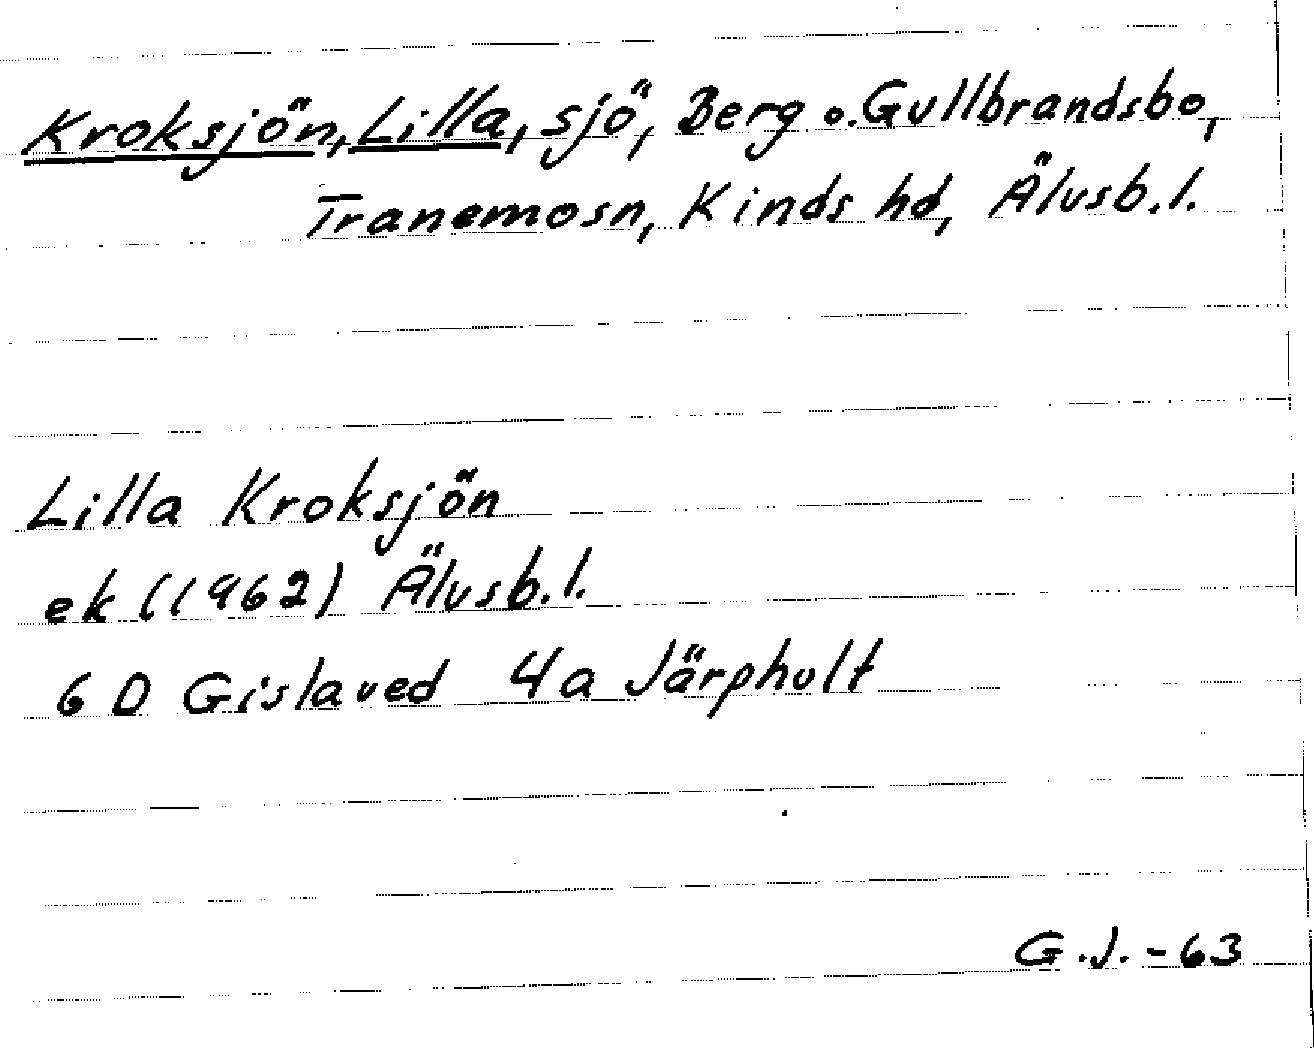 Kroksjön, Lilla, sjö, Berg o. Gullbrandsbo,
Tranemosn, Kinds hd, Älvsb.l.
Lilla Kroksjön
ek (1962) Älvsb.l.
6 D Gislaved 4a Järphult
G.J. - 63